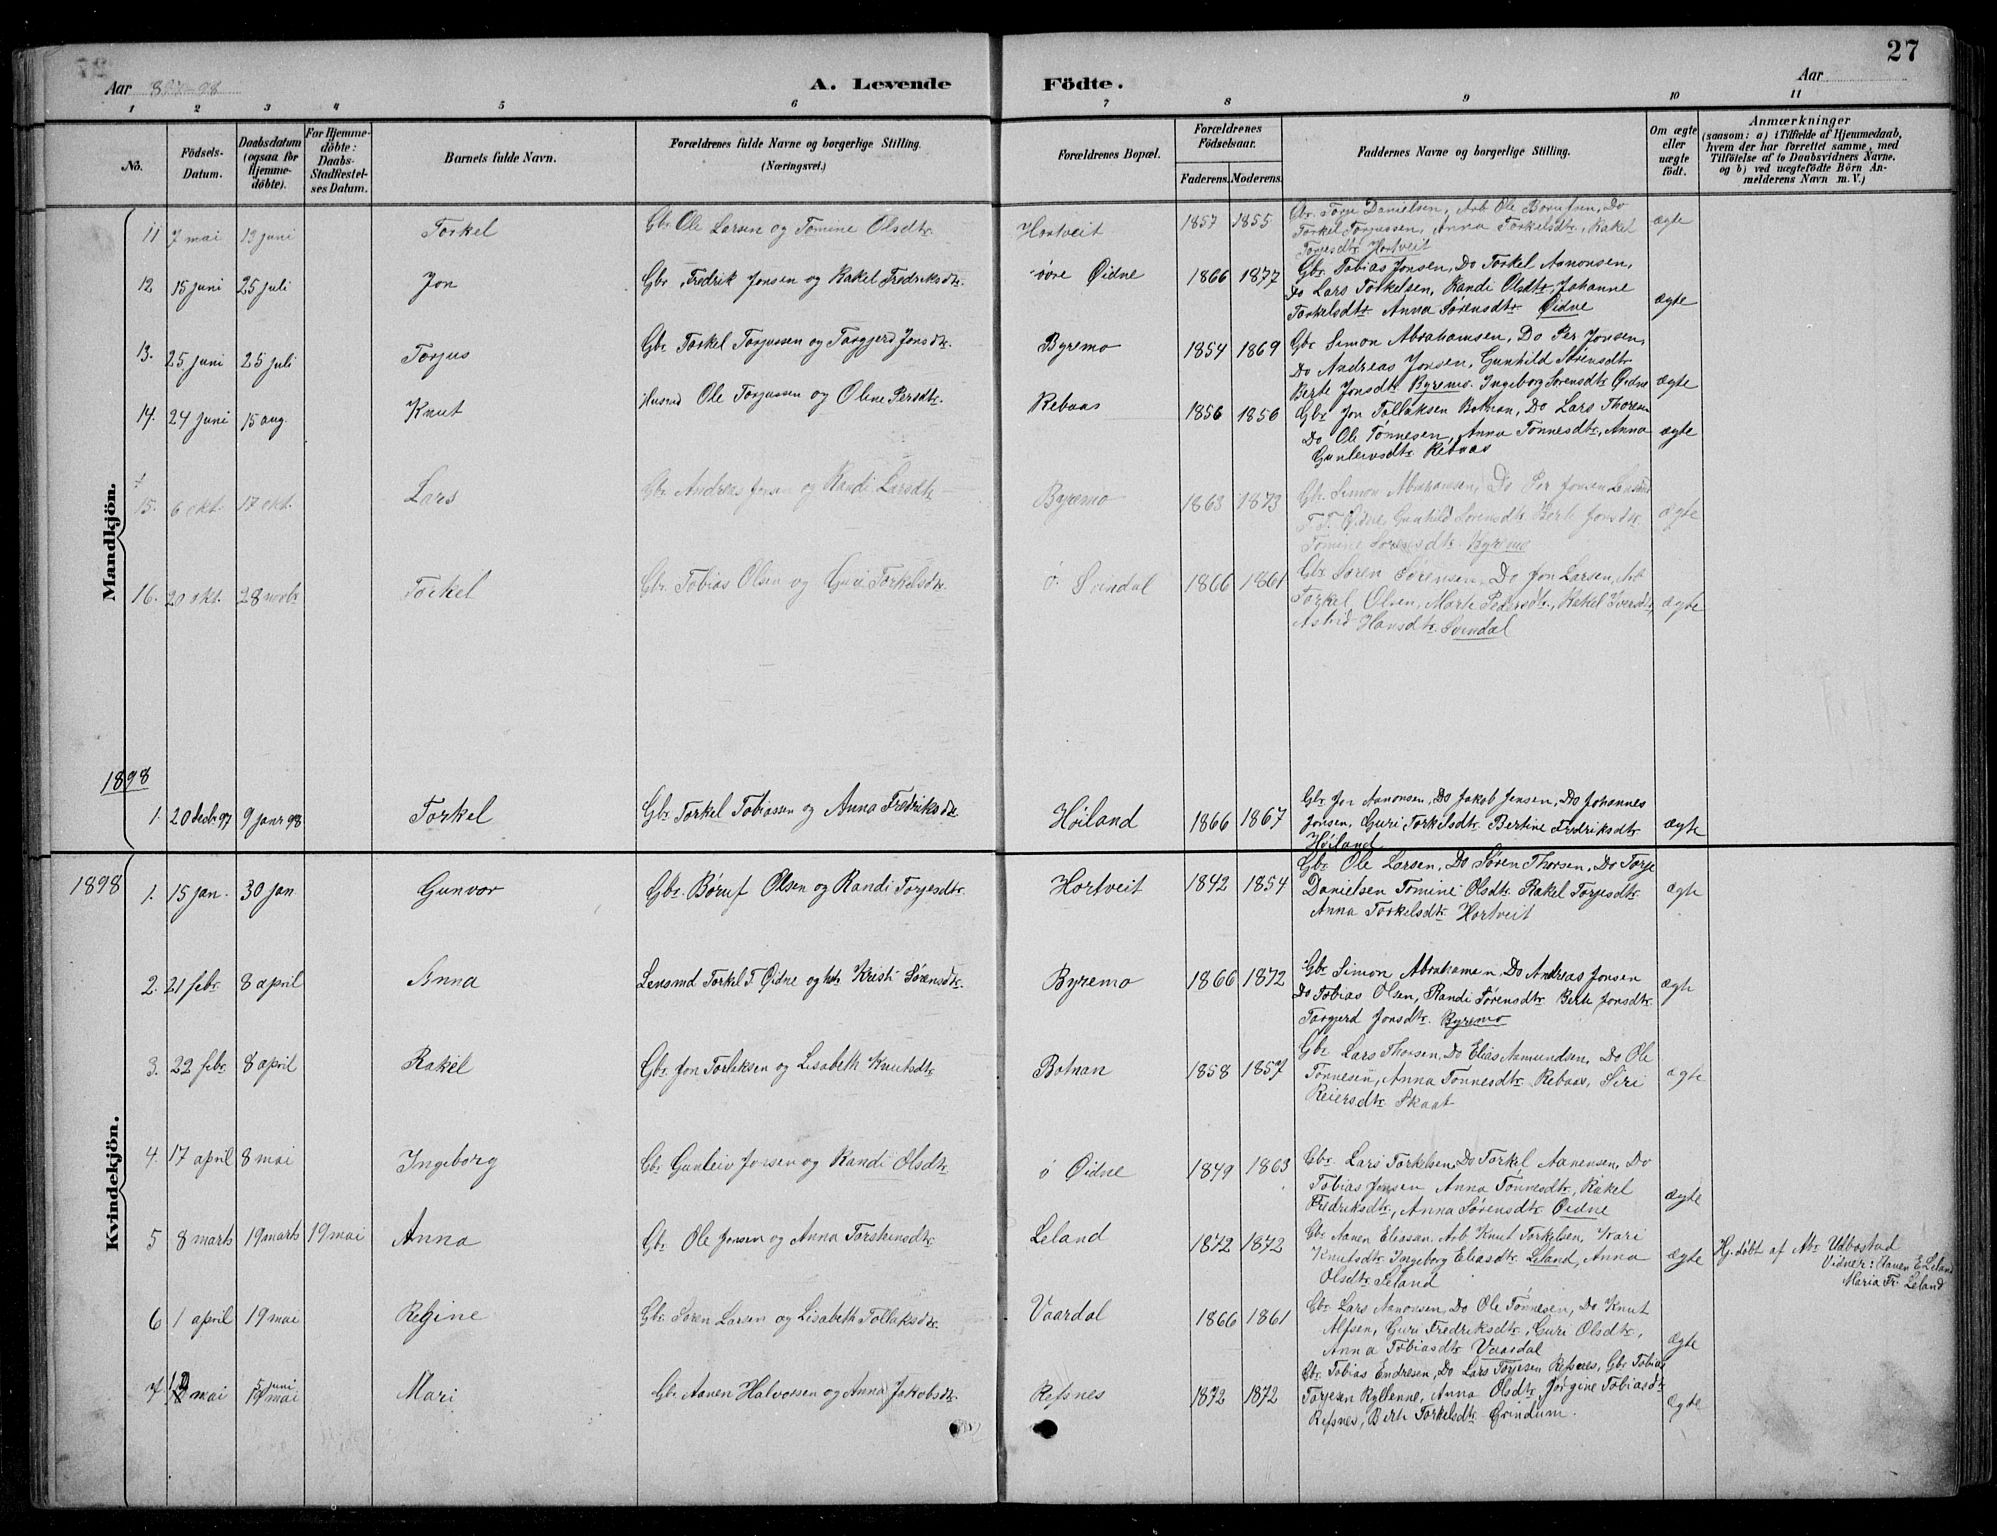 27
Aar 1897-98 A. Levende Födte. Aar
1 2 3 4 5 6 7 8 9 10 11
No. Födsels-Datum. Daabsdatum (ogsaa for Hjemmedöbte). For Hjemmedöbte: Daabs-Stadfæstelses Datum. Barnets fulde Navn. Forældrenes fulde Navne og borgerlige Stilling. (Næringsvei.) Forældrenes Bopæl. Forældrenes Födselsaar. Faderens. Moderens. Faddernes Navne og borgerlige Stilling. Om ægte eller uægte födt. Anmærkninger (saasom: a) i Tilfælde af Hjemmedaab, hvem der har forrettet samme, med Tilföielse af to Daabsvidners Navne. og b) ved uægtefödte Börn Anmelderens Navn m. V.)
Mandkjön.
11 7 mai 13 juni Torkel Gbr Ole Larsen og Tomine Olsdtr. Hortveit 1857 1855 Gbr. Torje Danielsen, Arb Ole Borufsen, Do
Torkel Torjussen, Anna Torkelsdtr, Rakel
Torjesdtr Hortveit ægte
12 15 juni 25 juli Jon Gbr. Fredrik Jonsen og Rakel Fredriksdtr. øvre Øidne 1866 1877 Gbr Tobias Jonsen, Do Torkel Aanonsen,
Do Lars Torkelsen, Randi Olsdtr, Johanne
Torkelsdtr Anna Sørensdtr Øidne ægte
13. 25 juni 25 juli Torjus Gbr Torkel Torjussen og Torgjerd Jonsdtr. Byremo 1854 1869 Gbr Simon Abrahamsen, Do Per Jonsen,
Do Andreas Jonsen, Gunhild Sørensdtr
Berte Jonsdtr Byremo. Ingeborg Sørensdtr Øidne ægte
14. 24 juni 15 aug. Knut Husmd Ole Torjussen og Olene Persdtr. Rebaas 1856 1856 Gbr Jon Tollaksen Botnan, Do Lars Thorsen
Do Ole Tønnesen, Anna Tønnesdtr, Anna
Gunleivsdtr Rebaas ægte
15. 6 okt. 17 okt. Lars Gbr Andreas Jonsen og Randi Larsdtr Byremo 1863 1873 Gbr. Simon Abrahamsen, Do Per Jonsen Lensmd
T. T. Øidne, Gunhild Sørensdtr Berte Jonsdtr
Tomine Sørensdtr Byremo ægte
16. 20 okt. 28 novbr Torkel Gbr Tobias Olsen og Guri Torkelsdtr. ø. Svindal 1866 1861 Gbr Søren Sørensen, Do Jon Larsen, Arb
Torkel Olsen, Marte Pedersdtr, Rakel Iversdtr,
Astrid Hansdtr. Svindal ægte
1898
1. 20 decbr 97 9 janr 98 Torkel Gbr Torkel Tobiassen og Anna Fredriksdtr Høiland 1866 1867 Gbr Jon Aanonsen, Do Jakob Jensen, Do Johannes
Jonsen, Guri Torkelsdtr. Bertine Fredriksdtr
Høiland ægte
Kvindekjön.
1898 1. 15 jan. 30 jan Gunvor Gbr. Børuf Olsen og Randi Torjesdtr. Hortveit 1842 1854 Gbr Ole Larsen, Do Søren Thorsen, Do Torje
Danielsen Tomine Olsdtr Rakel Torjesdtr
Anna Torkelsdtr Hortveit ægte
2. 21 febr. 8 april Anna Lensmd Torkel T. Øidne og htr Kristi Sørensdtr. Byremo 1866 1872 Gbr Simon Abrahamsen, Do Andreas Jonsen
Do Tobias Olsen, Randi Sørensdtr Berte Jonsdtr
Torgjerd Jonsdtr. Byremo ægte
3. 22 febr. 8 april Rakel Gbr Jon Tollaksen og Lisabeth Knutsdtr Botnan 1858 1857 Gbr Lars Thorsen, Do Elias Asmundsen, Do Ole
Tønnesen, Anna Tønnesdtr Rebaas, Siri
Reiersdtr Skaat ægte
4. 17 april 8 mai Ingeborg Gbr Gunleiv Jonsen og Randi Olsdtr ø Øidne 1849 1863 Gbr Lars Torkelsen, Do Torkel Aanensen, Do
Tobias Jonsen Anna Tønnesdtr, Rakel
Fredriksdtr, Anna Sørensdtr Øidne ægte
5 8 marts 19 marts 19 mai Anna Gbr Ole Jonsen og Anna Torsteinsdtr Leland 1872 1872 Gbr Aanen Eliassen Arb Knut Torkelsen, Kari
Knutsdtr Ingeborg Eliasdtr Leland, Anna
Olsdtr Leland ægte Hj. døbt af Abr Udbostad
Vidner: Aanen E Leland
Maria Fr. Leland
6 1 april 19 mai Regine Gbr Søren Larsen og Lisabeth Tollaksdtr Vaardal 1866 1861 Gbr Lars Aanonsen, Do Ole Tønnesen, Do Knut
Alfsen, Guri Fredriksdtr, Guri Olsdtr,
Anna Tobiasdtr Vaardal ægte
7 mai 5 juni Mari Gbr Aanen Halvorsen og Anna Jakobsdtr Refsnes 1872 1872 Gbr Tobias Endresen, Do Lars Torjesen Refsnes, Gbr Tobias
Torjesen Kyllenne, Anna Olsdtr Jørgine Tobiasdtr
Refsnes, Berte Torkelsdtr Grindum. Ægte